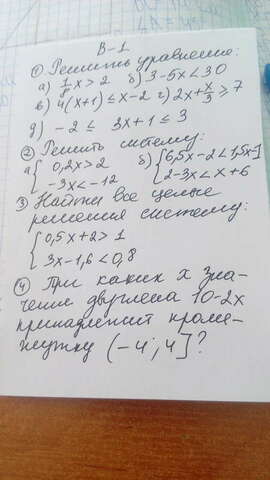 В-1
① Решить уравнения:
а) 1/8 x > 2 б) 3-5x < 30
в) 4(x+1) ≤ x-2 г) 2x + x/3 ≥ 7
д) -2 ≤ 3x+1 ≤ 3
② Решить систему:
а) { 0,2x > 2 б) { 6,5x-2 < 1,5x-1
-3x < -12 2-3x < x+6
③ Найти все целые
решения систему:
{ 0,5x+2 > 1
3x-1,6 < 0,8
④ При каких x зна-
чение двучлена 10-2x
принадлежит проме-
жутку (-4; 4]?